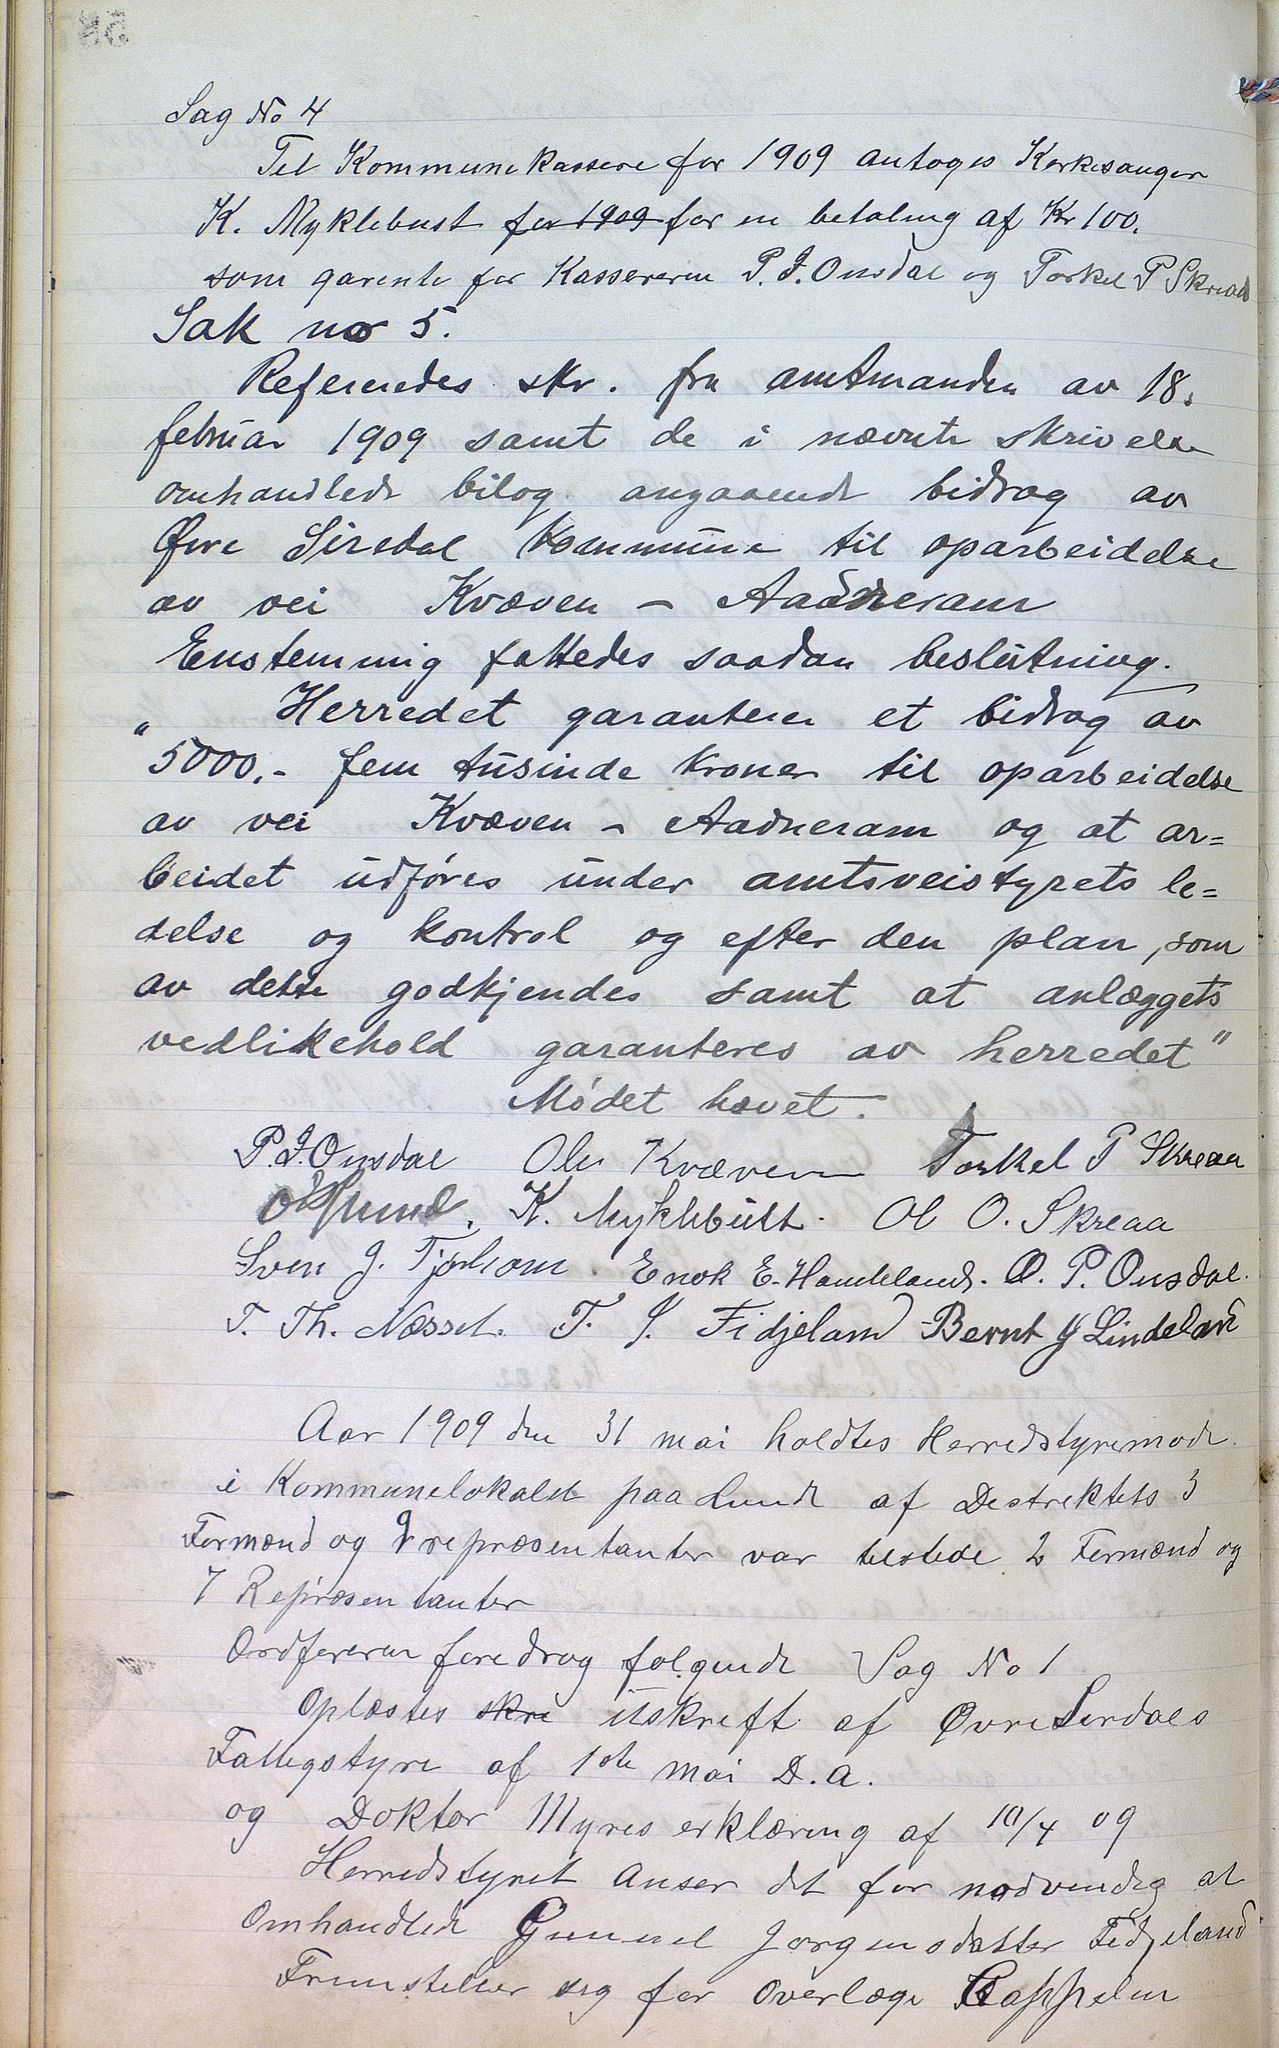 Sag No 4
Til Kommunekassere for 1909 antoges Kerkesanger
K. Myklebust for 1909 for en betaling af Kr 100.
som garente for Kassereren P. J. Ousdal og Torkel P Skreaa
Sak no 5.
Refereredes skr. fra amtmanden av 18.
februar 1909 samt de i nævnte skrivelse
omhandlede bilag angaaende bidrag av
Øvre Siredal Kommune til oparbeidelse
av vei Kvæven - Aadneram
Enstemmig fattedes saadan beslutning.
" Herredet garanterer et bidrag av
5000.- fem tusinde kroner til oparbeidelse
av vei Kvæven - Aadneram og at ar=
beidet udføres under amtsveistyrets le=
delse og kontrol og efter den plan, som
av dette godkjendes samt at anlæggets
vedlikehold garanteres av herredet"
Mødet hævet.
P. J. Ousdal Ole Kvæven Torkel P Skreaa
K. Myklebust. Ol O. Skreaa
Sven J. Tjørhom. Enok E. Handeland. O. P. Ousdal.
T. Th. Næsset. T. J. Fidjeland Bernt G Lindeland
Aar 1909 den 31 mai holdtes Herredstyremøde
i Kommunelokalet paa Lunde af Destrektets 3
Formænd og 9 repræsentanter var telstede 2 Formænd og
7 Repræsentanter
Ordføreren foredrog følgende Sag No 1
Oplæstes skre utskreft af Øvre Serdals
Fattegstyre af 1ste mai D.a.
og Doktor Myres erklæreng af 10/4 09
Herredstyret anser det for nødvendeg at
Omhandlede Gunnel Jørgensdatter Fedjeland
Fremsteller seg for Overlæge Cappelen